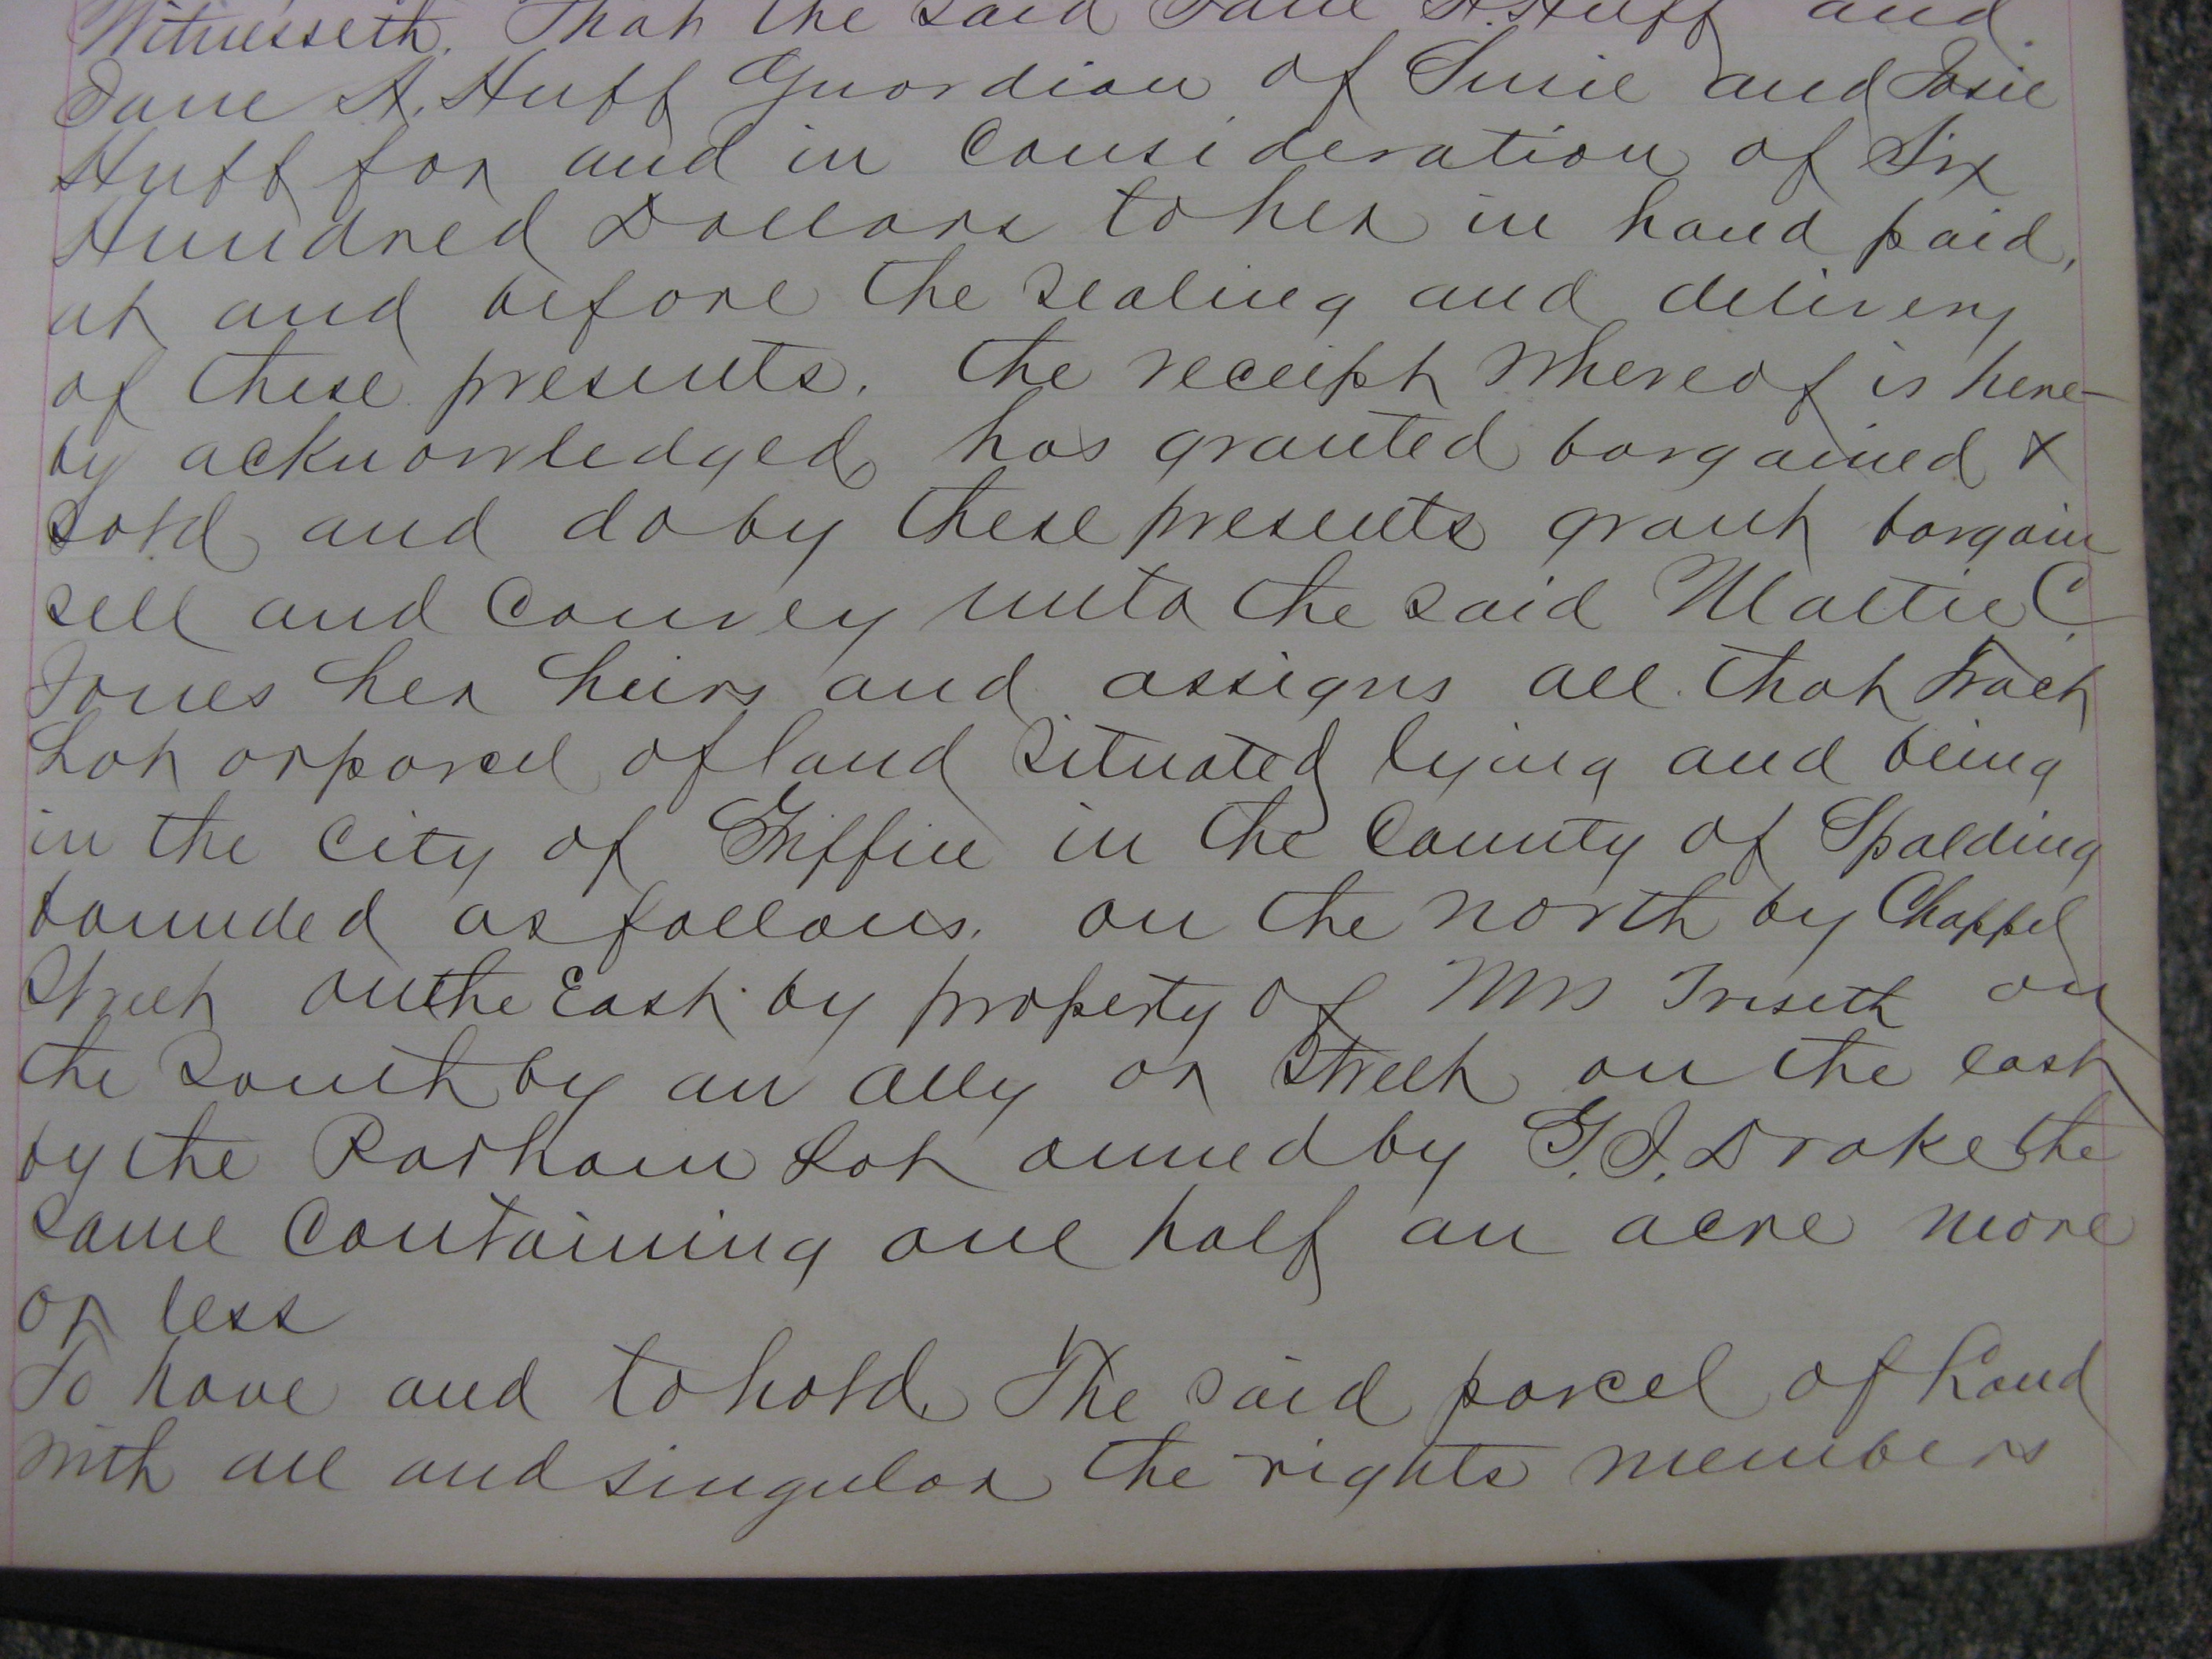 Witnesseth. That the said Jane A. Huff and
Jane A. Huff Guardian of Susie and Josie
Huff for and in Consideration of Six
Hundred Dollars to her in hand paid,
at and before the sealing and delivery
of these presents. the receipt whereof is here-
by acknowledged, has granted bargained &
sold and do by these presents grant bargain
sell and Convey unto the said Mattie C.
Jones her heirs and assigns all that tract
Lot or parcel of land situated lying and being
in the City of Griffin in the County of Spalding
bounded as follows. on the north by Chappel
Street on the East by property of Mrs on
the South by an ally or Street on the east
by the Parham Lot owned by G. J. Drake the
same Containing one half an acre more
or less
To have and to hold, The said parcel of Land
with all and singular the rights members